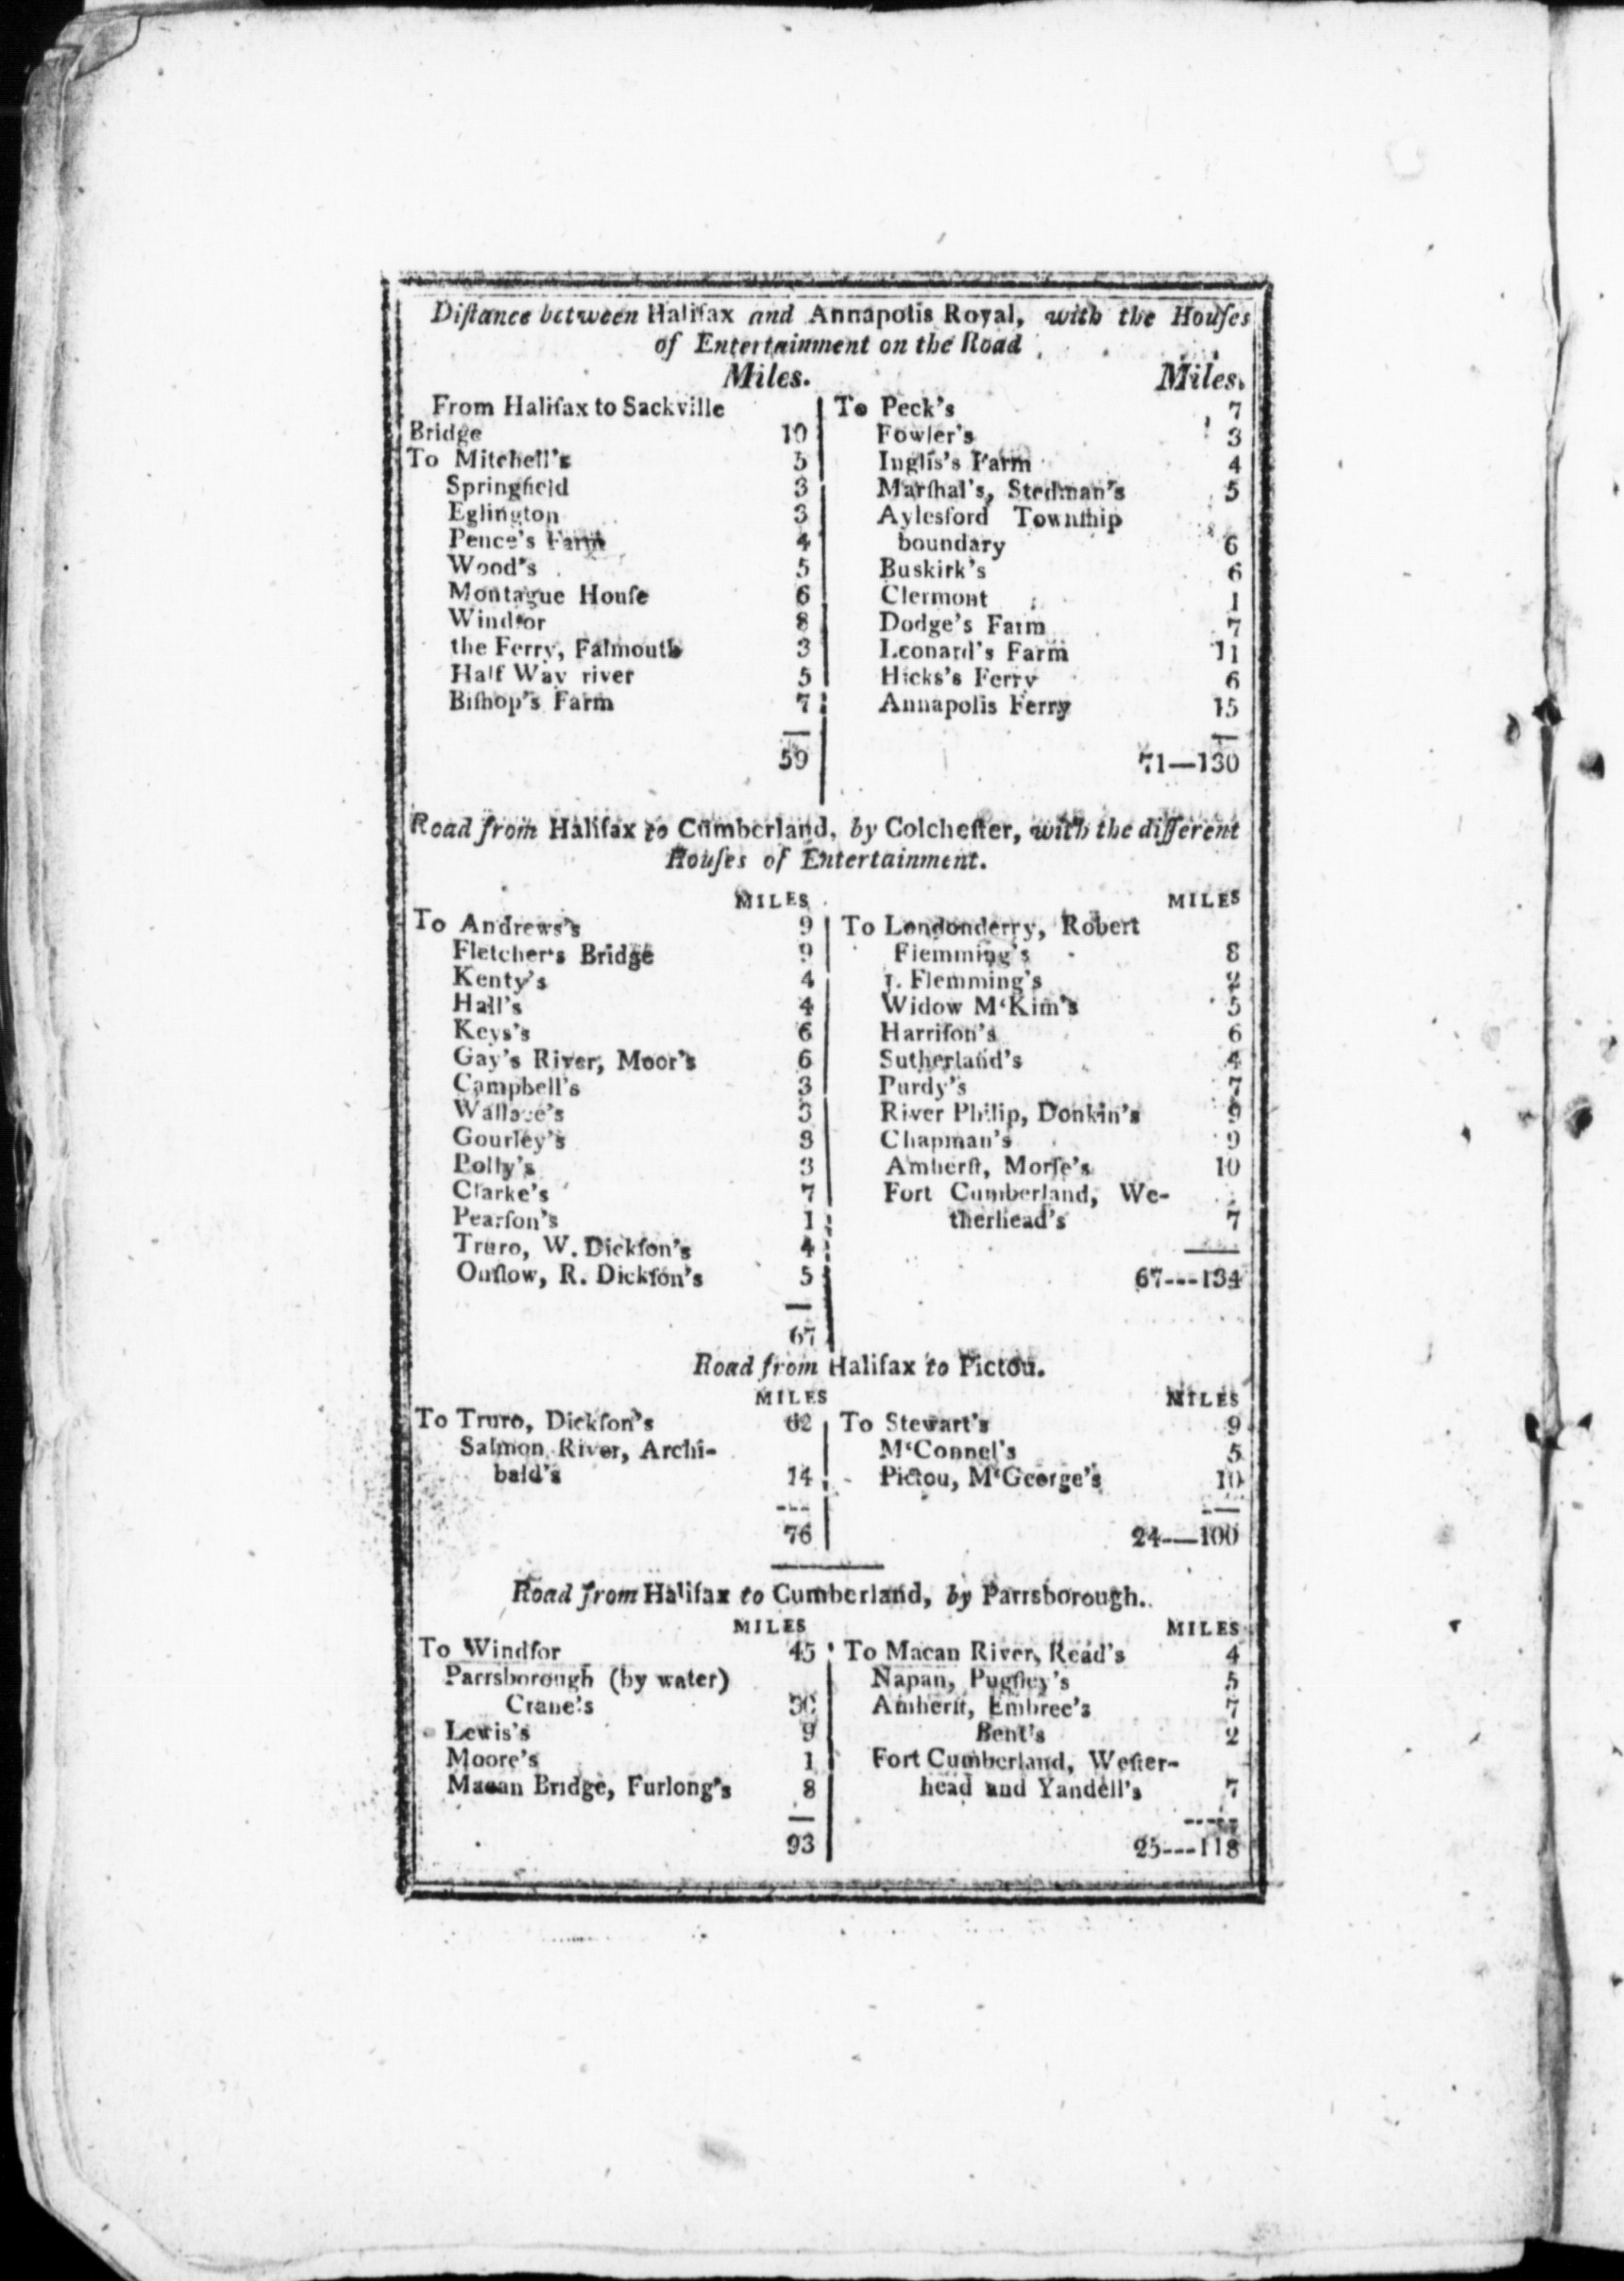 Diſtance between Halifax and Annapolis Royal, with the Houſes
of Entertainment on the Road
Miles.
From Halifax to Sackville
Bridge 10
To Mitchell's 5
Springfield 3
Eglington 3
Pence's Farm 4
Wood's 5
Montague Houſe 6
Windſor 8
the Ferry, Falmouth 3
Half Way river 5
Biſhop's Farm 7
59
Miles.
To Peck's 7
Fowler's 3
Inglis's Farm 4
Marſhal's, Stedman's 5
Aylesford Townſhip
boundary 6
Buskirk's 6
Clermont 1
Dodge's Farm 7
Leonard's Farm 11
Hicks's Ferry 6
Annapolis Ferry 15
71—130
Road from Halifax to Cumberland, by Colcheſter, with the different
Houſes of Entertainment.
MILES
To Andrews's 9
Fletcher's Bridge 9
Kenty's 4
Hall's 4
Keys's 6
Gay's River, Moor's 6
Campbell's 3
Wallace's 3
Gourley's 3
Polly's 3
Clarke's 7
Pearſon's 1
Truro, W. Dickſon's 4
Onſlow, R. Dickſon's 5
67
MILES
To Londonderry, Robert
Flemming's 8
J. Flemming's 2
Widow M‘Kim's 5
Harriſon's 6
Sutherland's 4
Purdy's 7
River Philip, Donkin's 9
Chapman's 9
Amherſt, Morſe's 10
Fort Cumberland, We-
therhead's 7
67---134
Road from Halifax to Pictou.
MILES
To Truro, Dickſon's 62
Salmon River, Archi-
bald's 14
76
MILES
To Stewart's 9
M‘Connel's 5
Pictou, M‘George's 10
24—100
Road from Halifax to Cumberland, by Parrsborough.
MILES
To Windſor 45
Parrsborough (by water)
Crane's 30
Lewis's 9
Moore's 1
Macan Bridge, Furlong's 8
93
MILES
To Macan River, Read's 4
Napan, Pugſley's 5
Amherſt, Embree's 7
Bent's 2
Fort Cumberland, Weſter-
head and Yandell's 7
25---118